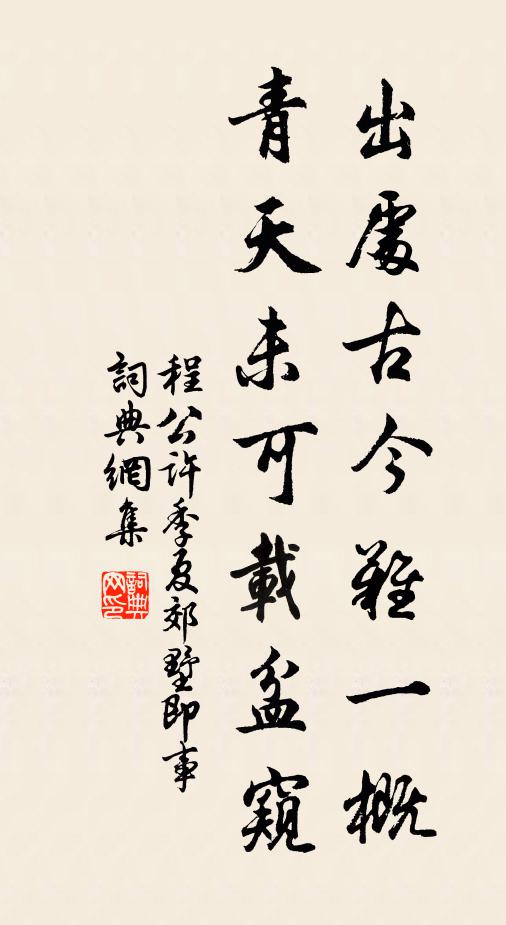 出處古今難一概
青天未可載盆窺
程公許季夏郊墅即事
詞典網集
詞典网印